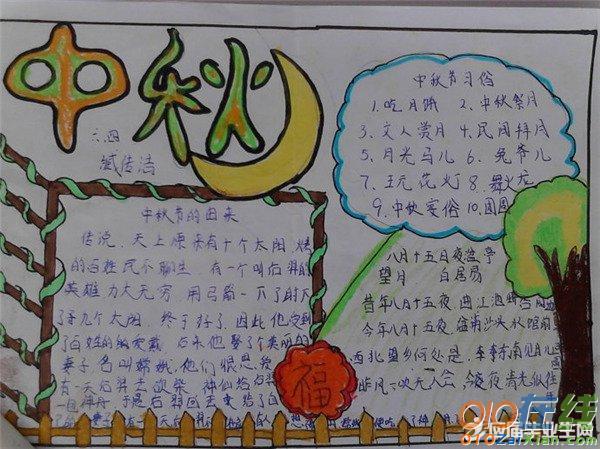 中秋
六.四
臧传洁
中秋节习俗
1.吃月饼 2.中秋祭月
3.文人赏月 4.民间拜月
5.月光马儿 6.兔爷儿
7.玩花灯 8.舞火龙
9.中秋宴俗 10.团圆
中秋节的由来
传说,天上原来有十个太阳 烤
的百姓民不聊生 有一个叫后羿的
英雄 力大无穷,用弓箭一下了射下
了九个太阳,终于好了,因此他受到
了百姓的的爱戴 后来他娶了美丽的
妻子 名叫嫦娥,他们很恩爱
有一天后羿去砍柴 神仙给后羿
八月十五日夜湓亭
望月 白居易
昔年八月十五夜,曲江池畔杏园边
今年八月十五夜,湓浦沙头水馆前
西北望乡何处是,东南见月几
昨风一吹无人会,今夜清光似往
福
99在线
9797Zaixian.com